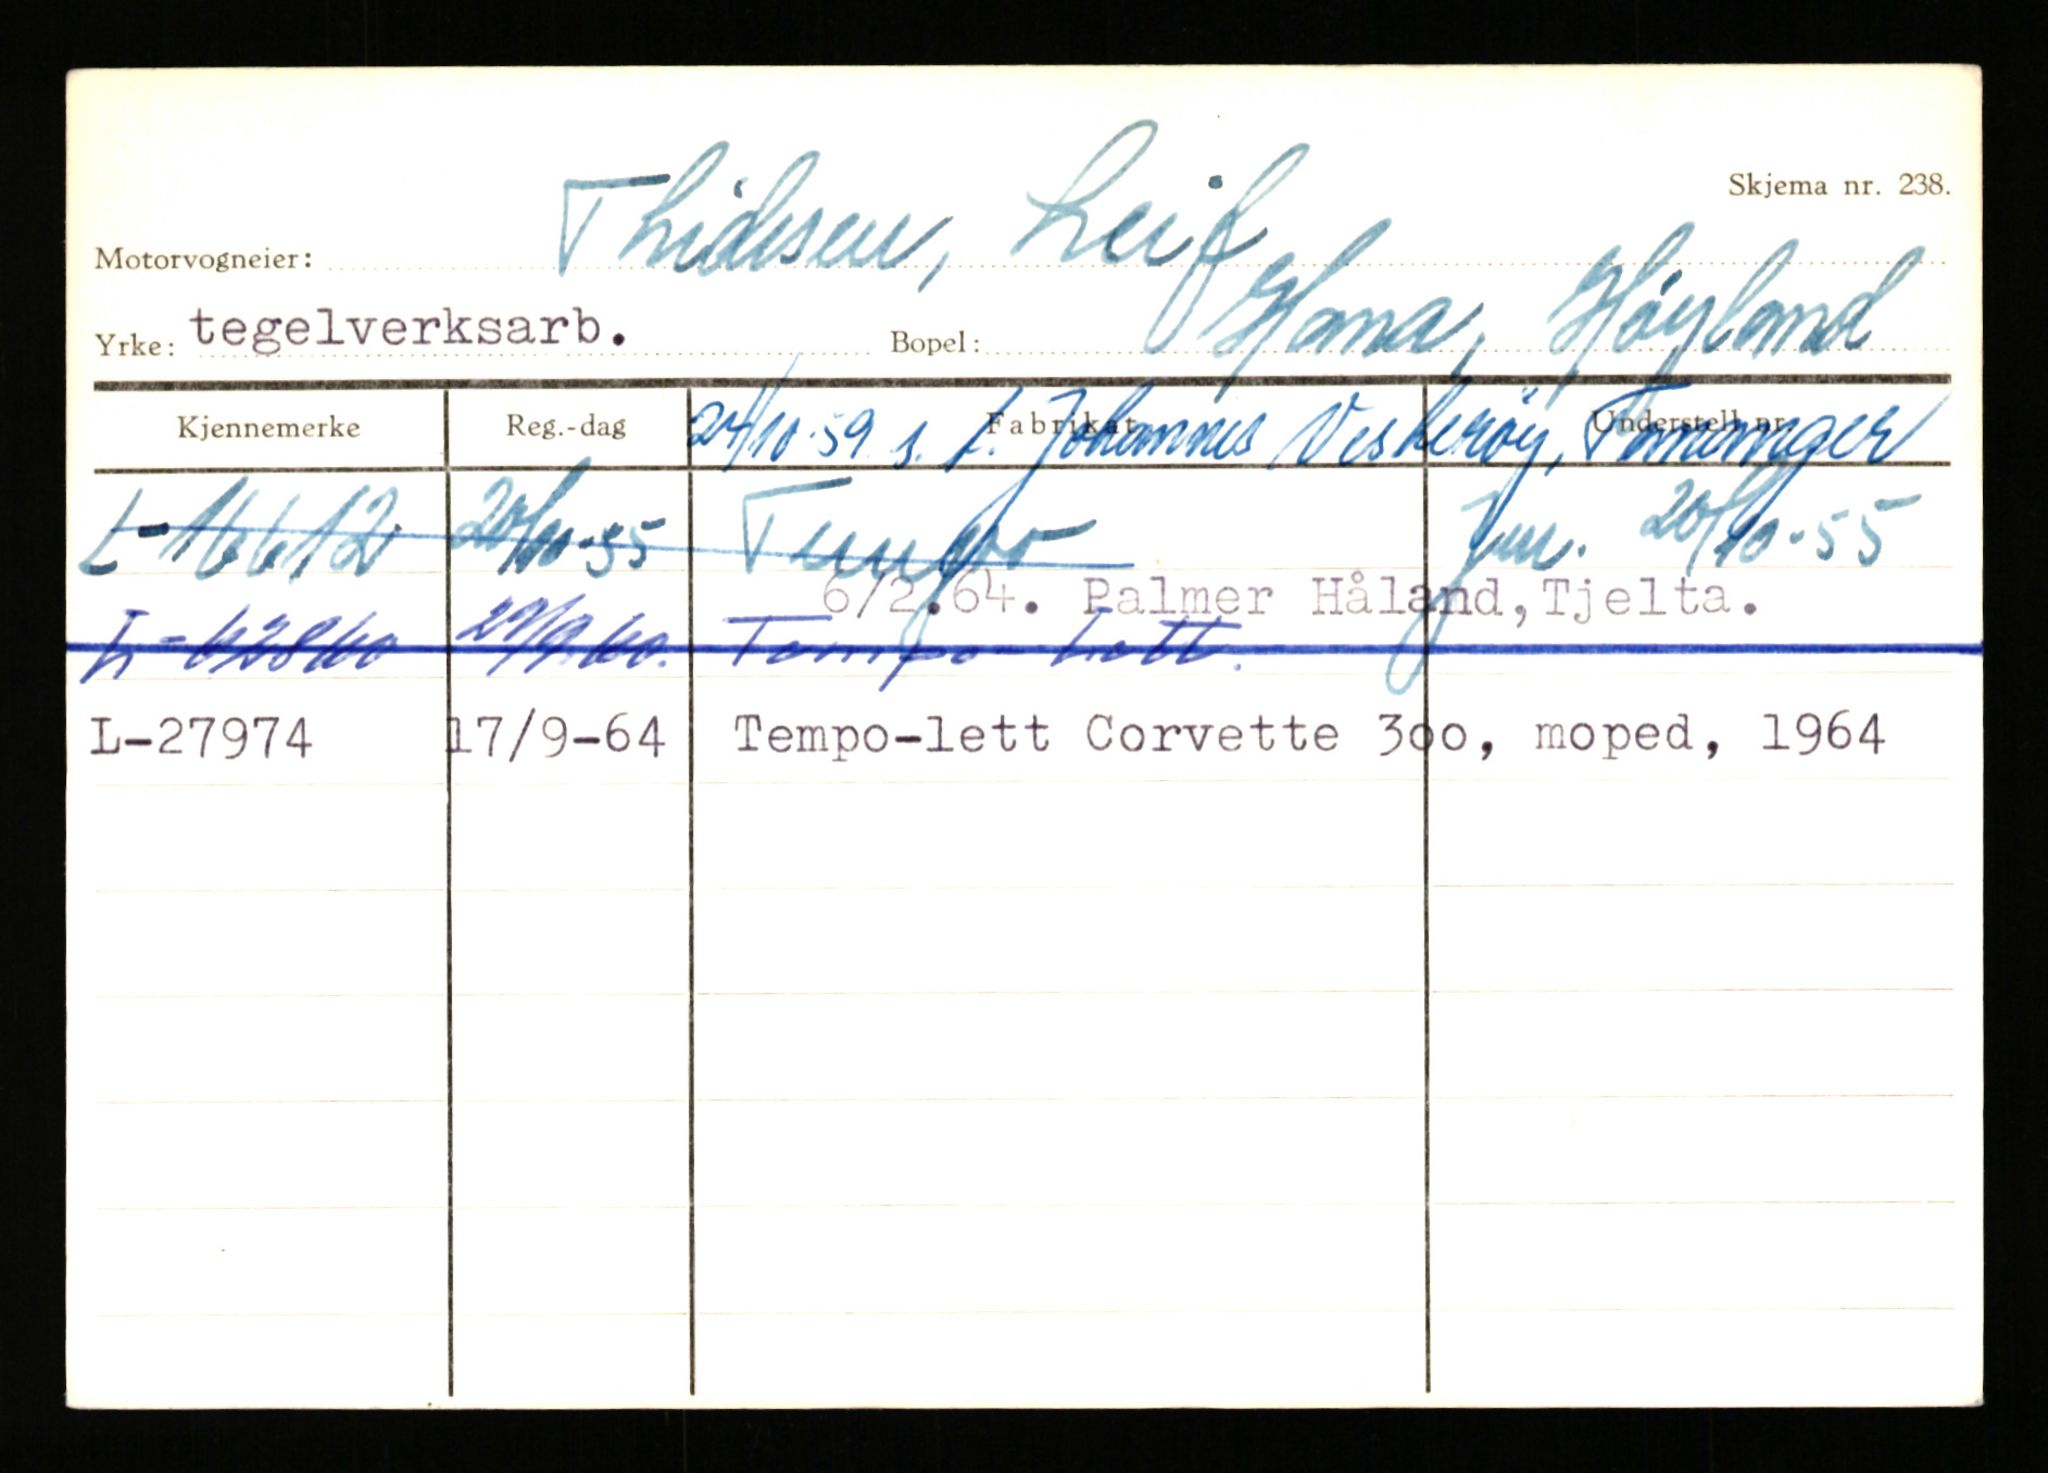 Skjema nr. 238.
Motorvogneier: Thidesen, Leif
Yrke: tegelverksarb. Bopel: Hana, Høyland
Kjennemerke Reg.-dag Fabrikat Understell nr.
24/10-59 s. t. Johannes Veskerøy, Tananger
L-16612 20/10-55 Tempo 20/10-55
6/2.64. Palmer Håland, Tjelta.
Tempo Lett.
L-27974 17/9-64 Tempo-lett Corvette 3oo, moped, 1964